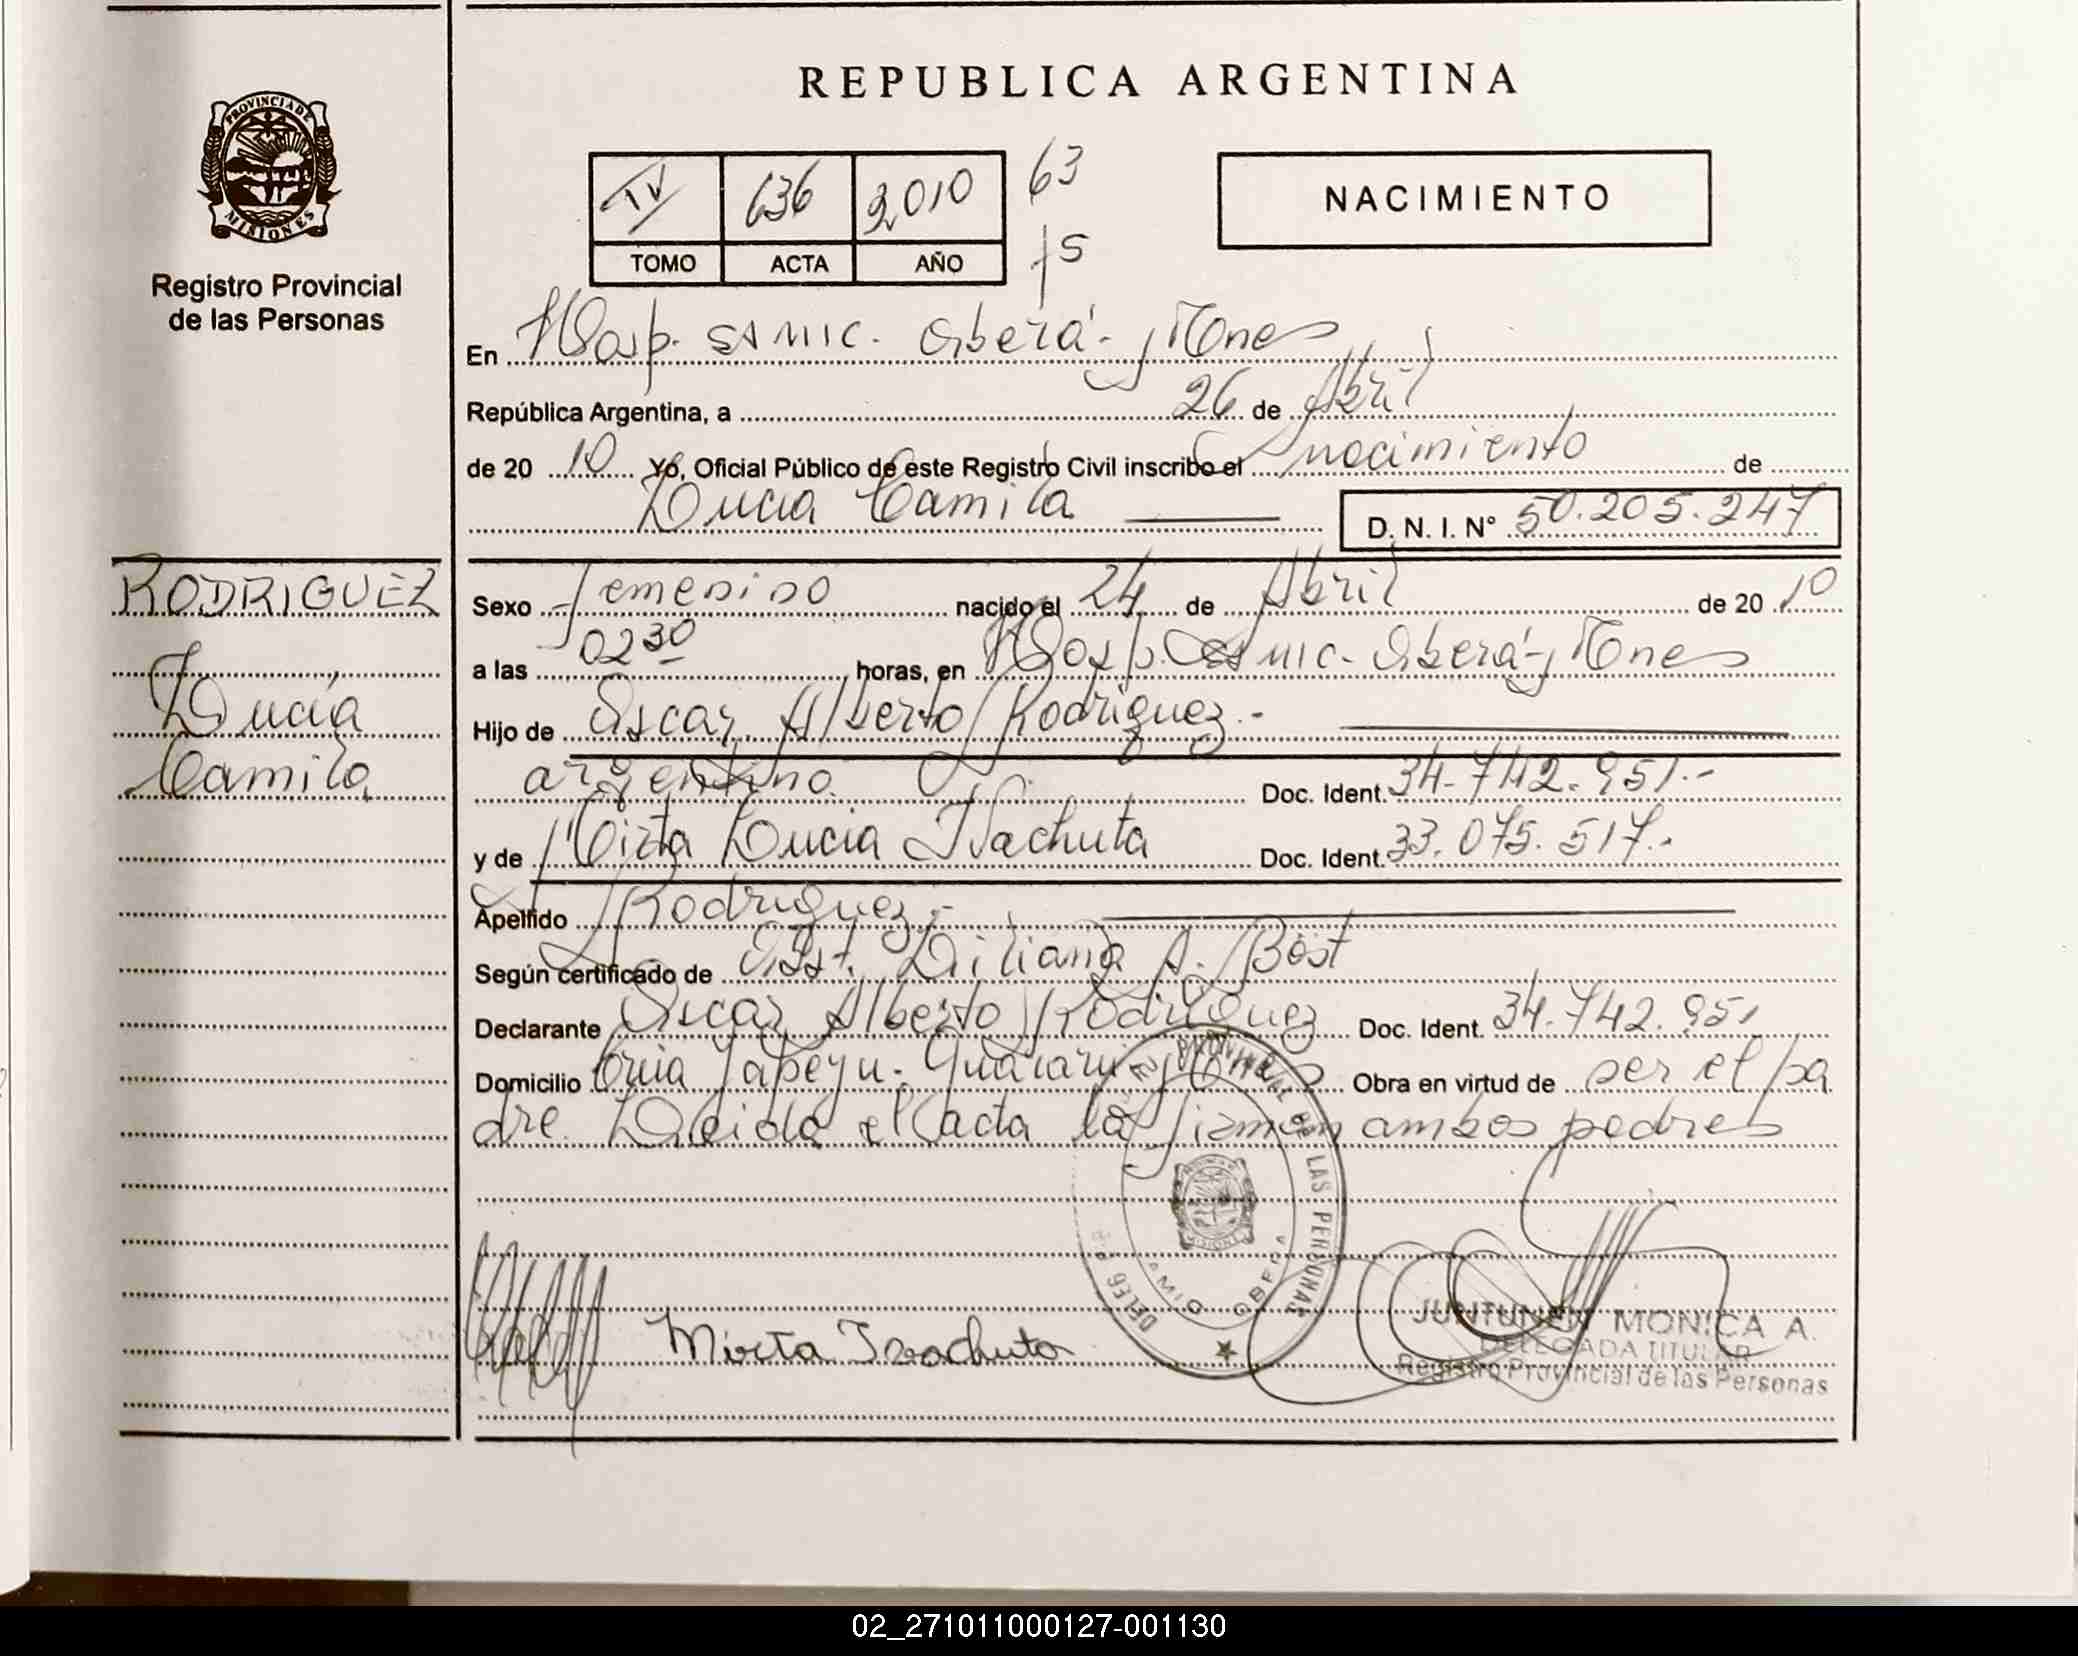 REPUBLICA ARGENTINA
PROVINCIA DE
MISIONES
Registro Provincial
de las Personas
IV 636 2010 63
TOMO ACTA AÑO
NACIMIENTO
En Hosp. SAMIC. Oberá- Mones
República Argentina, a 26 de Abril
de 20 10 Yo, Oficial Público de este Registro Civil inscribo el nacimiento de
Lucia Camila
D. N. I. N° 50.205.247
RODRIGUEZ
Lucía
Camila
Sexo Femenino nacido el 24 de Abril de 20 10
a las 02 30 horas, en Hosp. SAMIC- Oberá- Mones
Hijo de Oscar Alberto Rodriguez.-
argentino Doc. Ident. 34.742.951.-
y de Mirta Lucia Doc. Ident. 33.075.517.-
Apellido Rodriguez.-
Según certificado de Obst. Liliana A. Bost
Declarante Oscar Alberto Rodriguez Doc. Ident. 34.742.951
Domicilio Cnia Yapeyu. Guarani Mones Obra en virtud de ser el pa
dre. Leida el acta la firman ambos padres
PROVINCIAL DE LAS PERSONAS
MISIONES
OBERA
Mirta
JUNTUNEN MONICA A.
DELEGADA TITULAR
Registro Provincial de las Personas
02_271011000127-001130